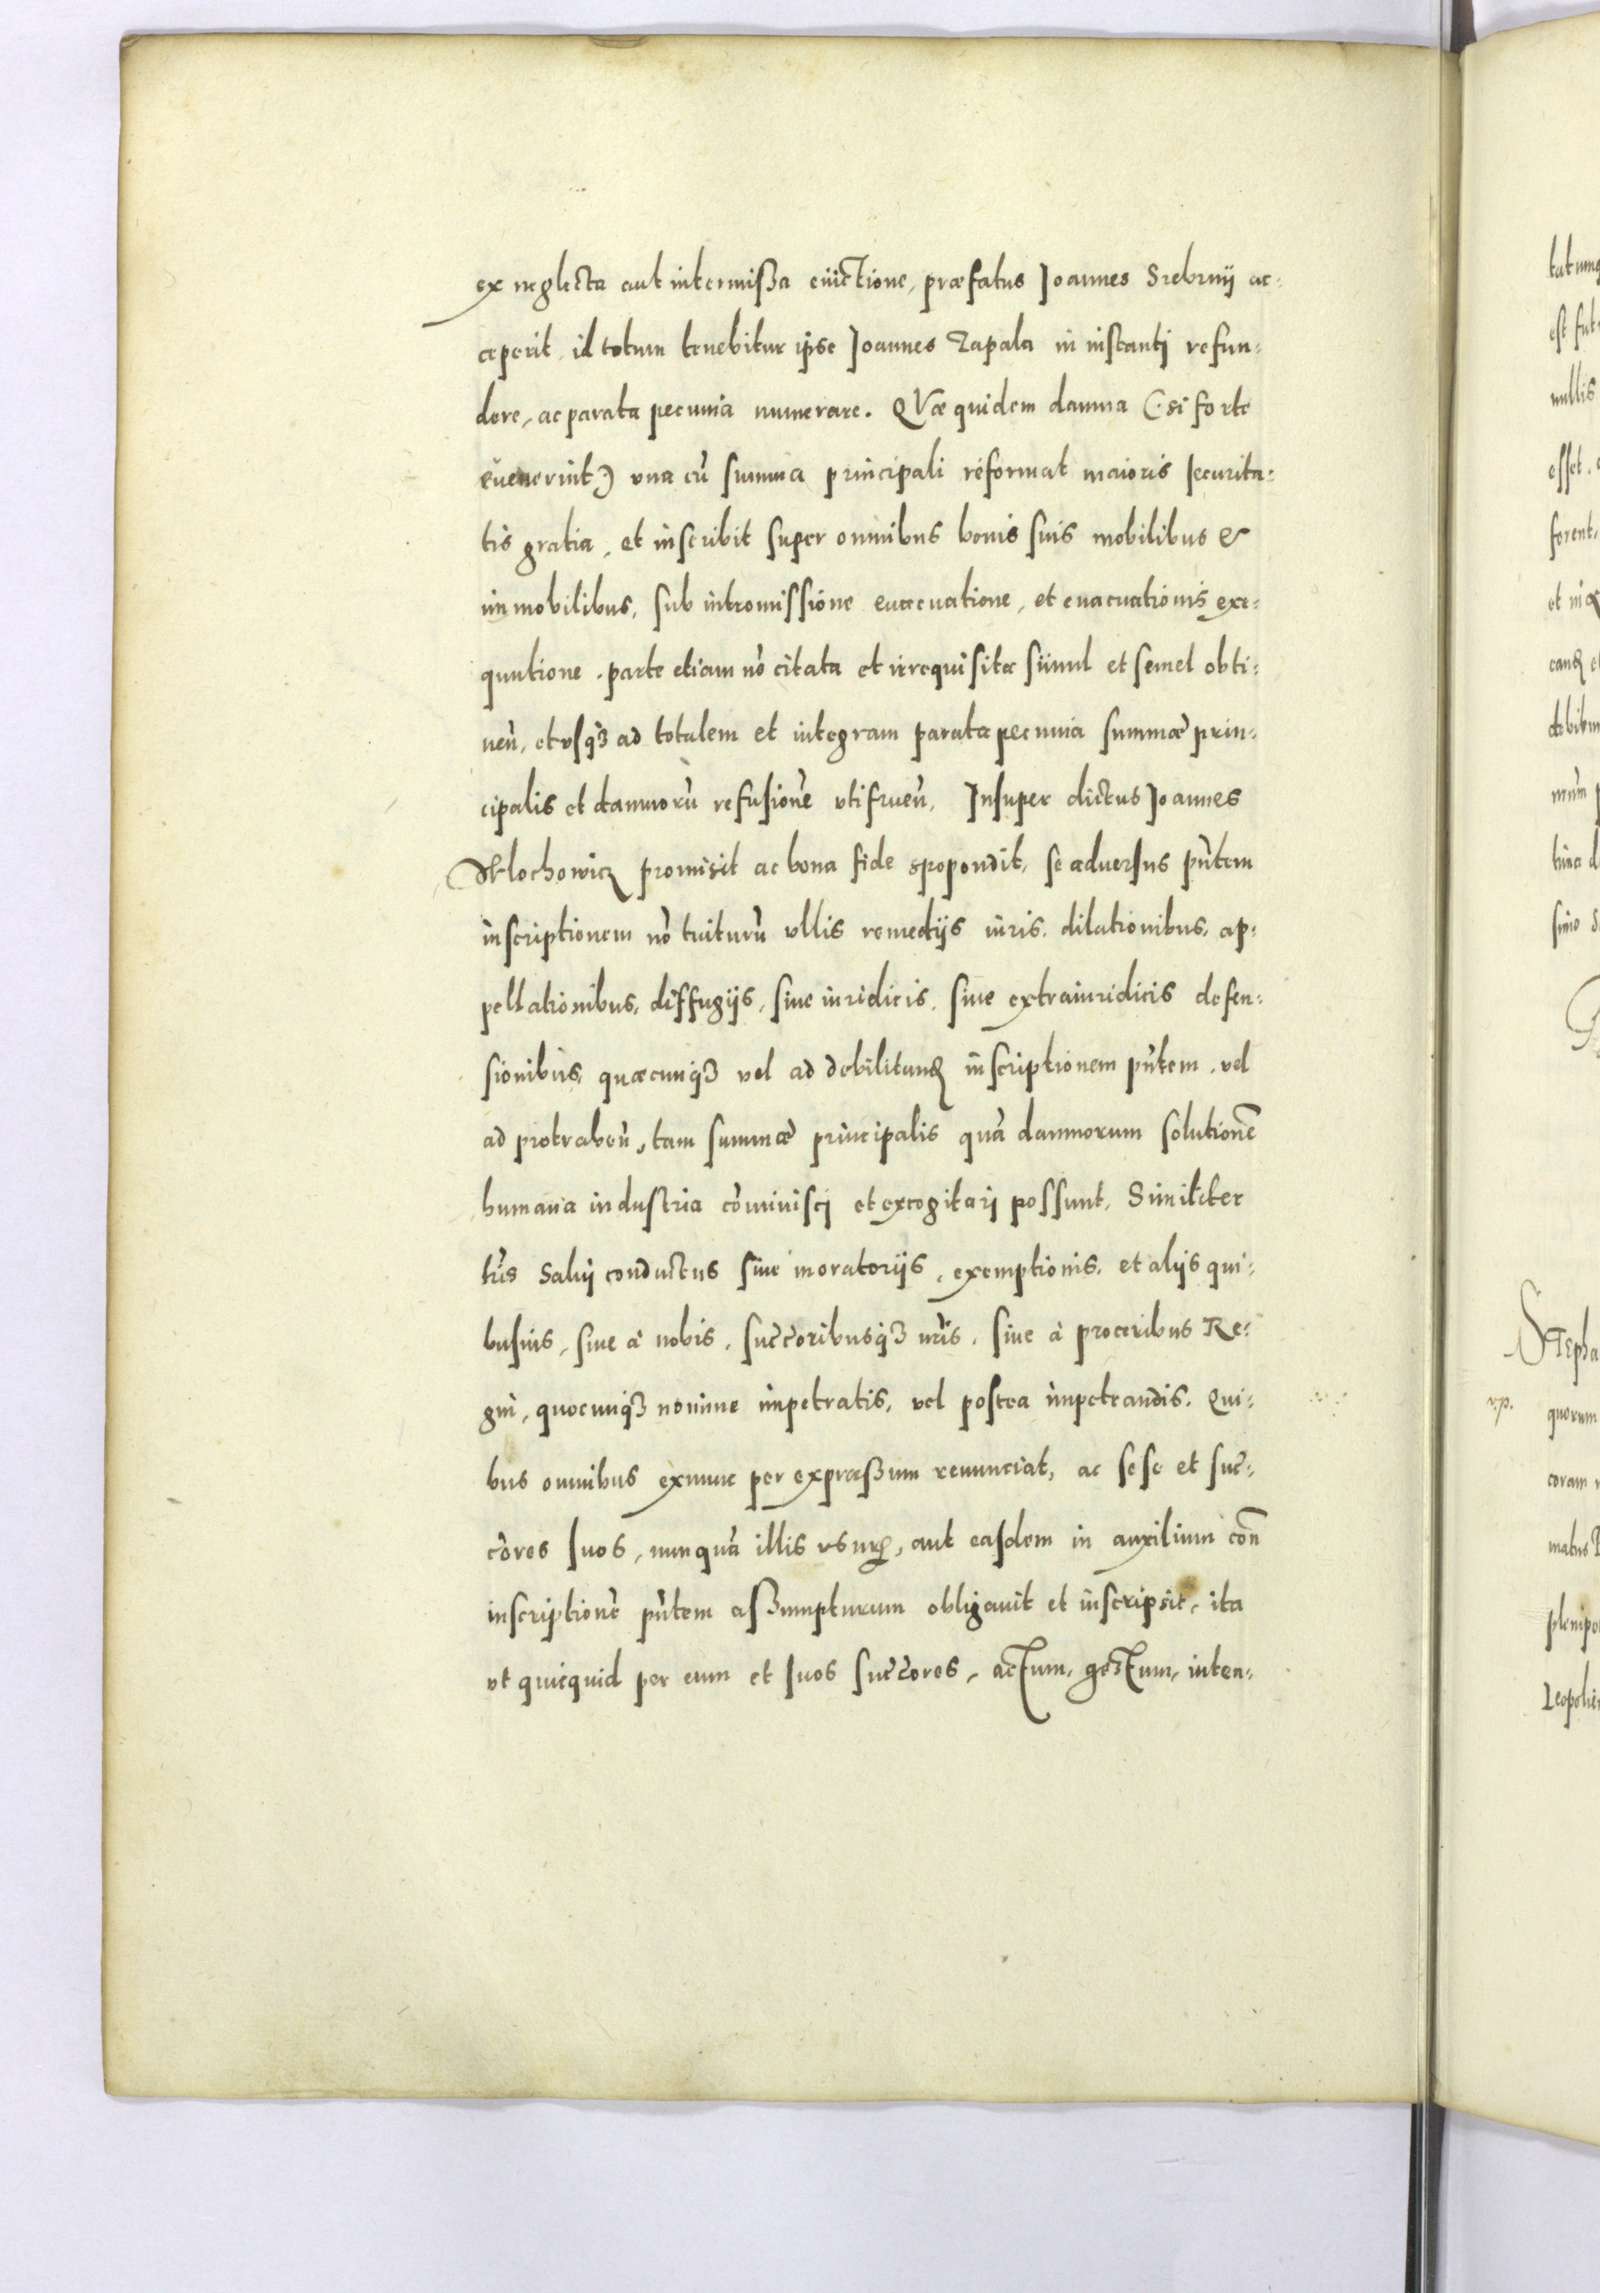 ex neglecta aut intermißa euictione, præfatus Joannes Srebrnÿ ac-
ceperit, id totum tenebitur ipse Joannes Zapala in instanti refun-
dere, ac parata pecunia numerare. QVæ quidem damna (:si forte
euenerint:) vna cū summa principali reformat maioris securita-
tis gratia, et inscribit super omnibus bonis suis mobilibus &
immobilibus, sub intromissione euacuatione, et euacuationis exe-
quutione, parte etiam nō citata et irrequisita simul et semel obti-
neñ, et vsq3 ad totalem et integram parata pecunia summæ prin-
cipalis et damnorū refusionē vtifrueñ, Insuper dictus Joannes
Wlochowicz promisit ac bona fide spopondit, se aduersus pñtem
inscriptionem nō tuiturū vllis remedijs iuris, dilationibus, ap-
pellationibus, diffugijs, siue iuridicis, siue extraiuridicis defen-
sionibus, quæcunq3 vel ad debilitandꝭ inscriptionem pñtem, vel
ad protraheñ, tam summæ principalis quā damnorum solutionē
humana industria cōminisci et excogitari possunt, Similiter
lr̄is salui conductus siue moratorijs, exemptionis, et alijs qui-
busuis, siue à nobis, succ̄oribusq3 nr̄is, siue à proceribus Re-
gni, quocunq3 nomine impetratis, vel postea impetrandis. Qui-
bus omnibus exnunc per expræßum renunciat, ac sese et suc̄-
c̄ores suos, nunquā illis vsurꝭ, aut easdem in auxilium coñ
inscriptionē pñtem aßumpturum obligauit et inscripsit, ita
vt quicquid per eum et suos succ̄ores, actum, gestum, inten-
Stepha
v.p.
quorum
coram